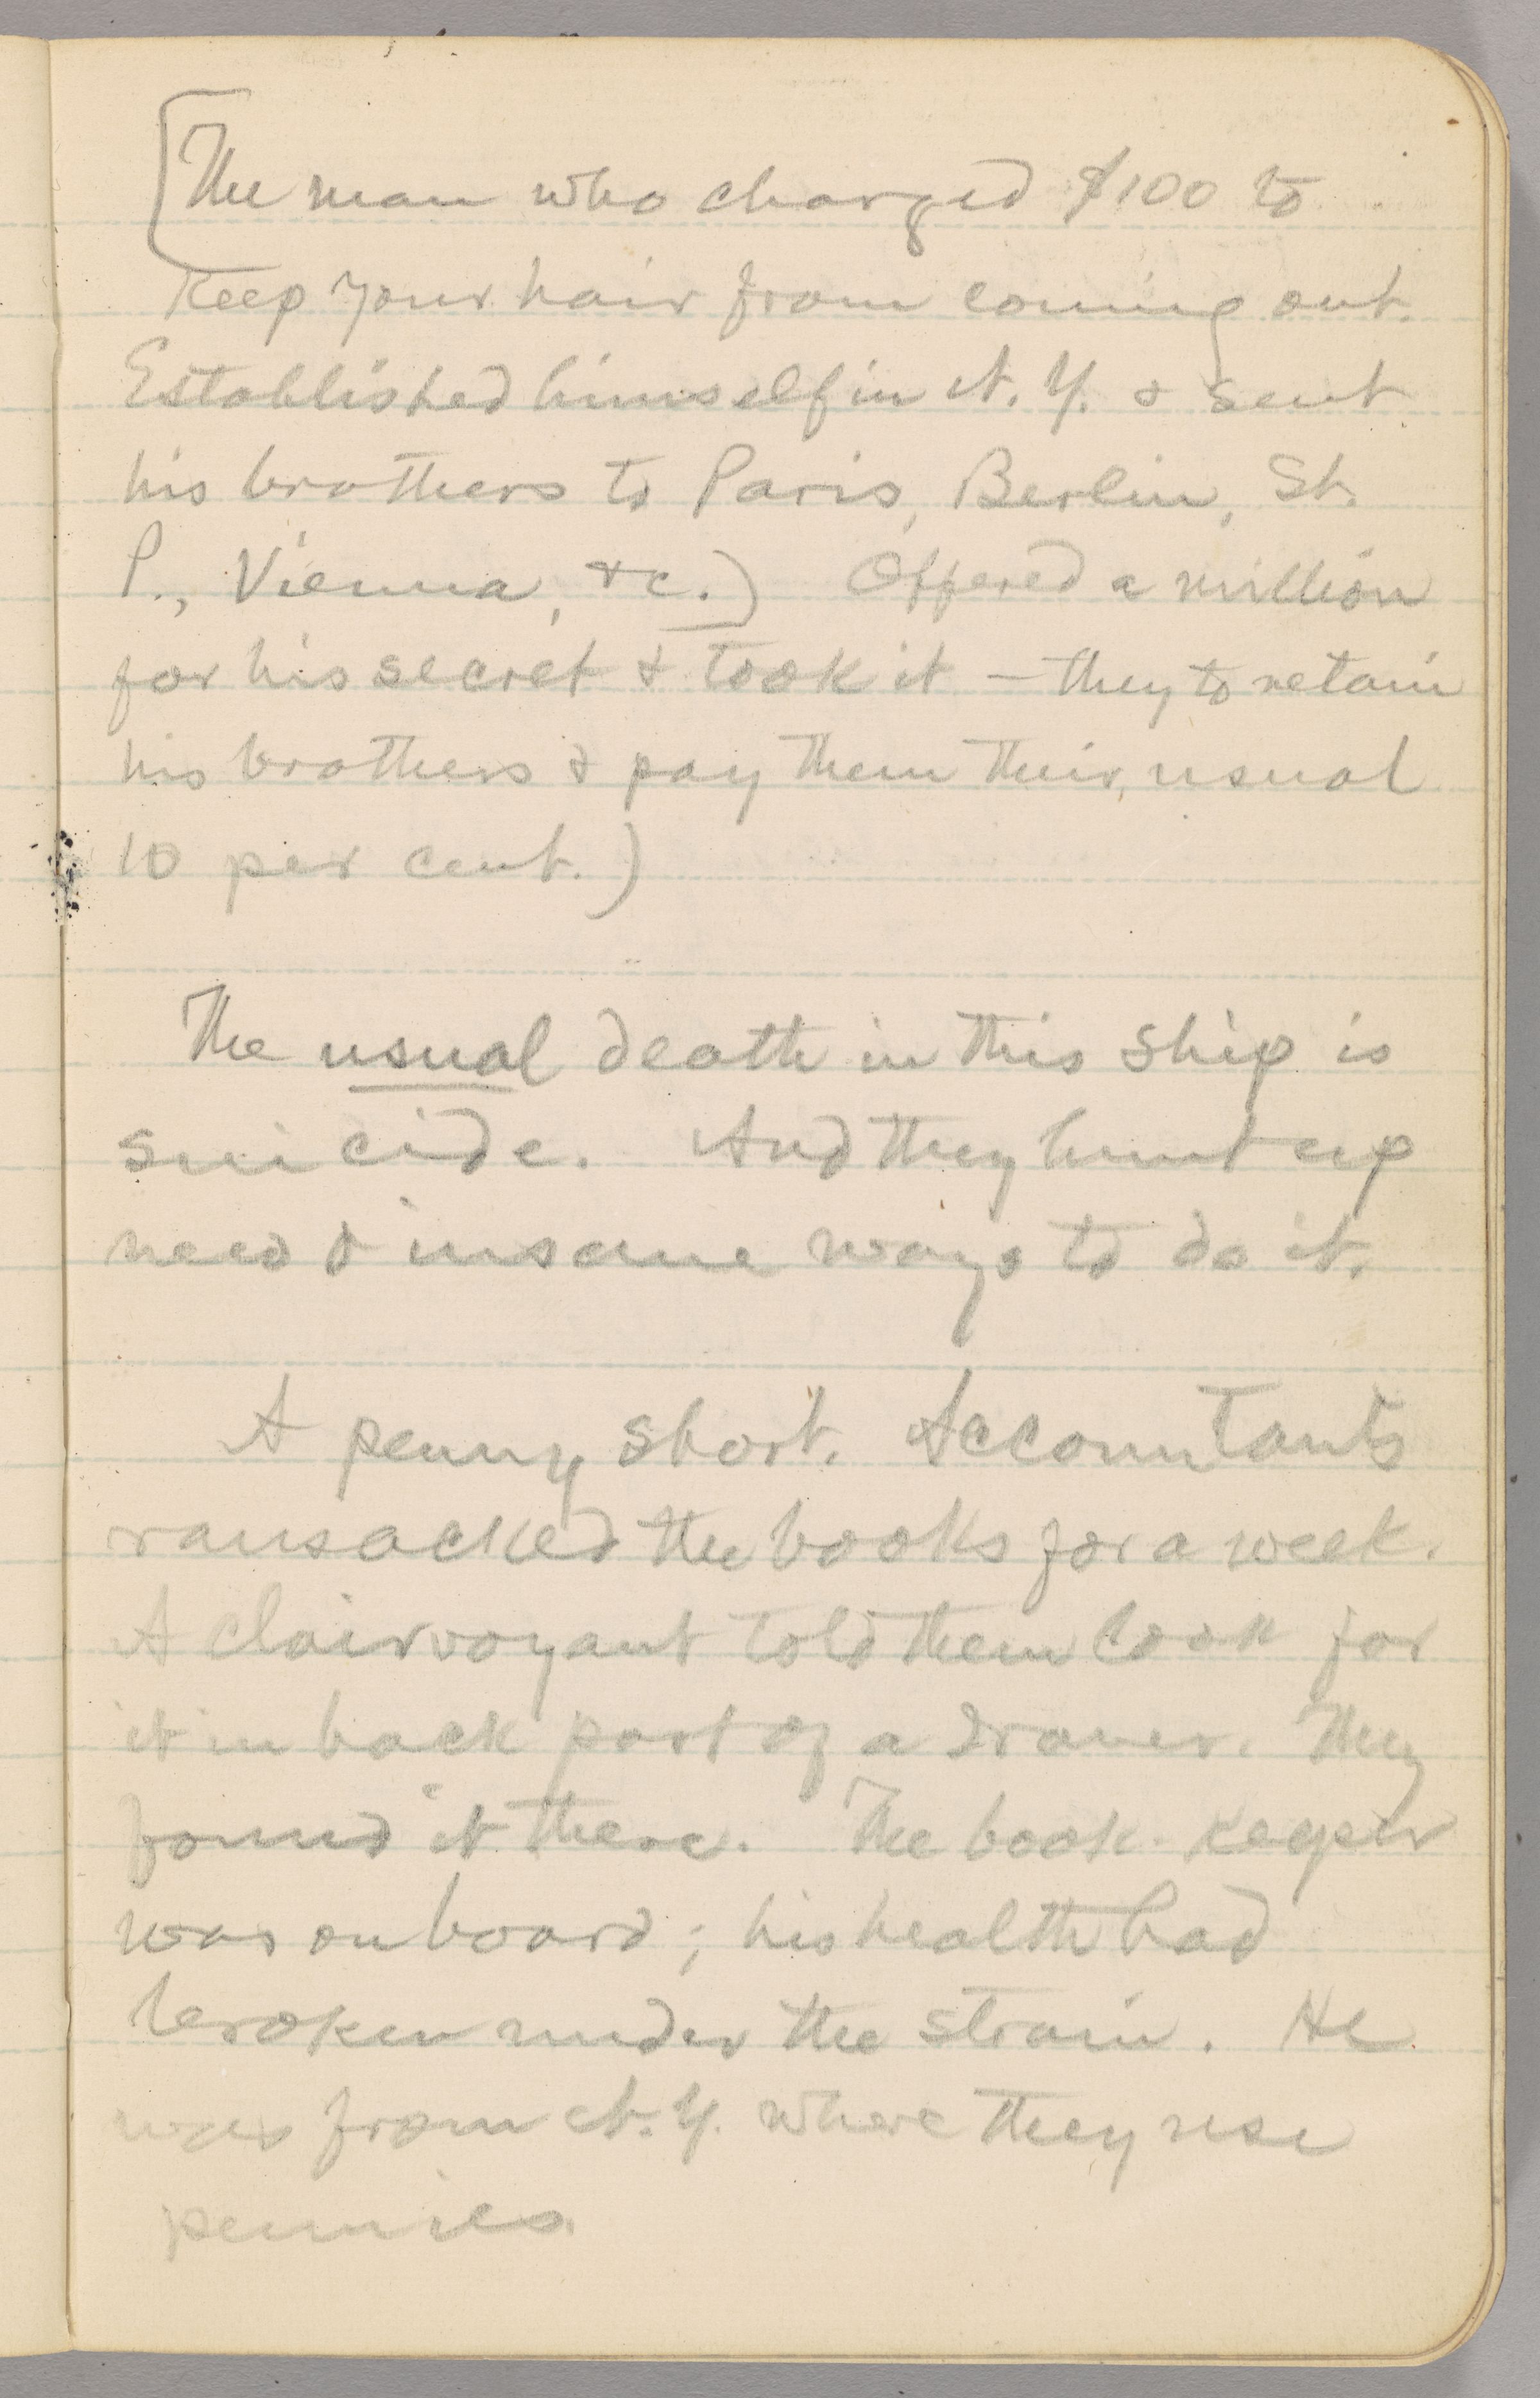 [The man who charged $100 to
keep your hair from coming out.
Established himself in N. Y. & sent
his brothers to Paris, Berlin, St.
P., Vienna, &c.) Offered a million
for his secret & took it — they to retain
his brothers & pay them their usual
10 per cent.)
The usual death in this ship is
suicide. And they hunt up
new & insane ways to do it.
A penny short. Accountants
ransacked the books for a week.
A clairvoyant told them look for
it in back part of a drawer. They
found it there. The book-keeper
was on board; his health had
broken under the strain. He
was from N. Y. where they use
pennies.